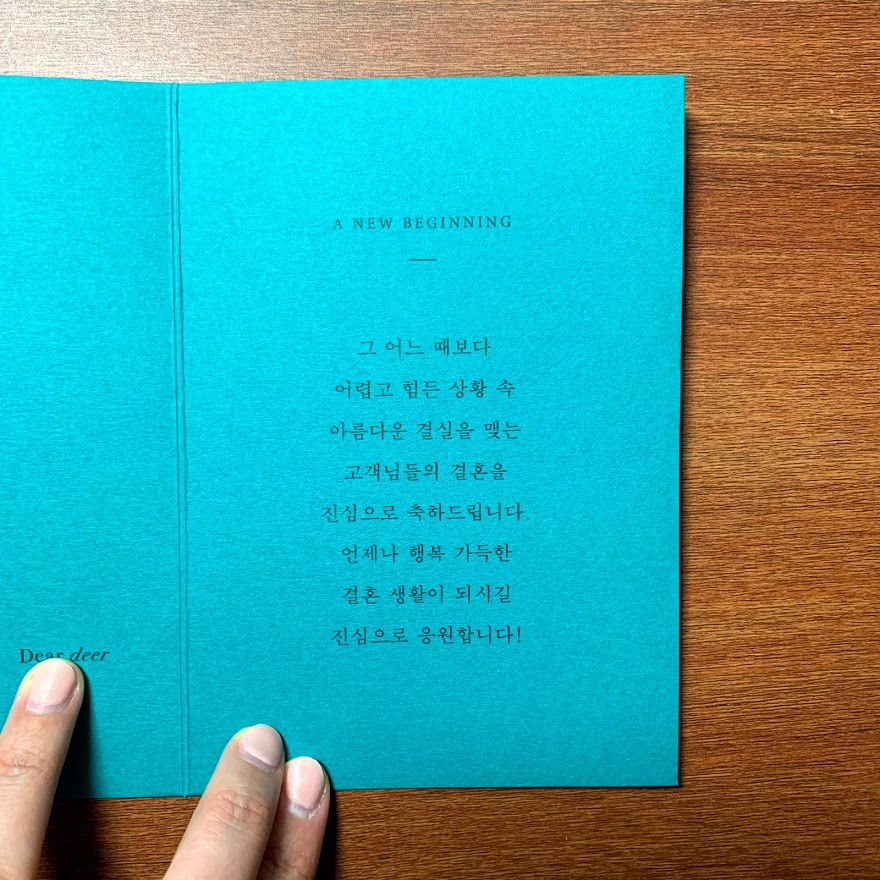 A NEW BEGINNING
그 어느 때보다
어렵고 힘든 상황 속
아름다운 결실을 맺는
고객님들의 결혼을
진심으로 축하드립니다.
언제나 행복 가득한
결혼 생활이 되시길
진심으로 응원합니다!
Dear deer